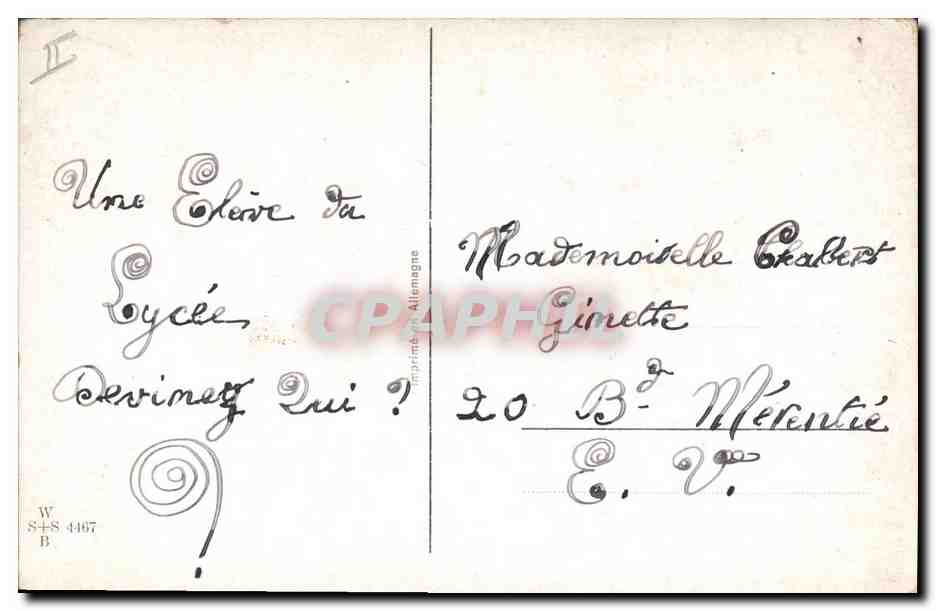 II
Une Elève du
Lycée
Devinez Qui ?
?
Mademoiselle Chabert
Ginette
20 Bd Mérentié
E. V.
Imprimé en Allemagne
CPAPHIL
W
S+S 4467
B